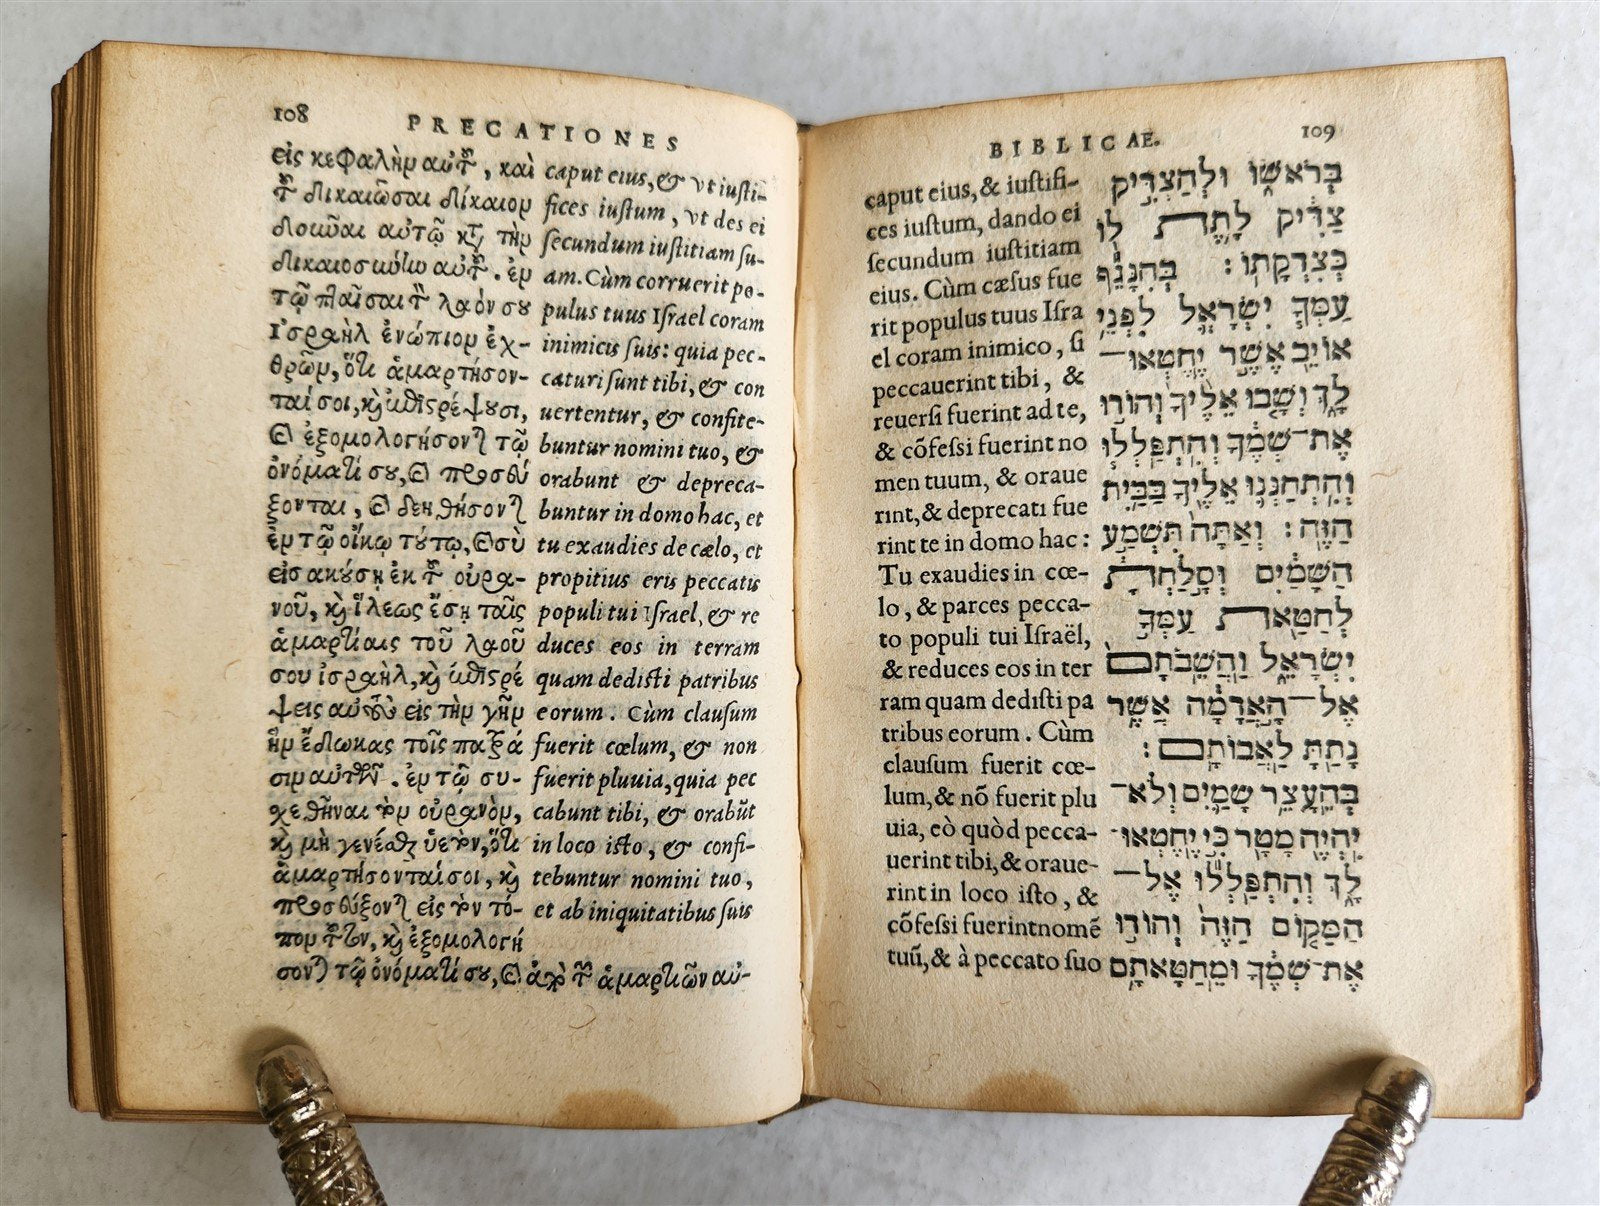 108
PRECATIONES
εἰς κεφαλὴν αὐτοῦ, καὶ
τοῦ δικαιῶσαι δίκαιον
δοῦναι αὐτῷ κτ τὴν
δικαιοσύνην αὐτοῦ. ἐν
τῷ πλαῖσαι τὸν λαόν σου
Ἰσραὴλ ἐνώπιον ἐχ-
θρῶν, ὅτι ἁμαρτήσον-
ταί σοι, καὶ ἐπιστρέψουσι,
καὶ ἐξομολογήσονται τῷ
ὀνόματί σου, καὶ προσεύ
ξονται, καὶ δεηθήσονται
ἐν τῷ οἴκῳ τούτῳ, καὶ σὺ
εἰσακούσῃ ἐκ τοῦ οὐρα-
νοῦ, καὶ ἵλεως ἔσῃ ταῖς
ἁμαρτίαις τοῦ λαοῦ
σου ἰσραὴλ, καὶ ἐπιστρέ
ψεις αὐτοὺς εἰς τὴν γῆν
ἣν ἔδωκας τοῖς πατρά
σιν αὐτῶν. ἐν τῷ συ-
χεθῆναι τὸν οὐρανὸν,
καὶ μὴ γενέσθαι ὑετὸν, ὅτι
ἁμαρτήσονταί σοι, καὶ
προσεύξονται εἰς τὸν τό-
πον τοῦτον, καὶ ἐξομολογή
σονται τῷ ὀνόματί σου, καὶ ἀπὸ τῶν ἁμαρτιῶν αὐ-
caput eius, & vt iusti-
fices iustum, vt des ei
secundum iustitiam su-
am. Cùm corruerit po-
pulus tuus Israel coram
inimicis suis: quia pec-
caturi sunt tibi, & con
uertentur, & confite-
buntur nomini tuo, &
orabunt & depreca-
buntur in domo hac, et
tu exaudies de cælo, et
propitius eris peccatis
populi tui Israel, & re
duces eos in terram
quam dedisti patribus
eorum. Cùm clausum
fuerit cœlum, & non
fuerit pluuia, quia pec
cabunt tibi, & orabūt
in loco isto, & confi-
tebuntur nomini tuo,
et ab iniquitatibus suis
BIBLICAE.
109
caput eius, & iustifi-
ces iustum, dando ei
secundum iustitiam
eius. Cùm cæsus fue
rit populus tuus Isra
el coram inimico, si
peccauerint tibi, &
reuersi fuerint ad te,
& cōfessi fuerint no
men tuum, & oraue
rint, & deprecati fue
rint te in domo hac:
Tu exaudies in cœ-
lo, & parces pecca-
to populi tui Israël,
& reduces eos in ter
ram quam dedisti pa
tribus eorum. Cùm
clausum fuerit cœ-
lum, & nō fuerit plu
uia, eò quòd pecca-
uerint tibi, & oraue-
rint in loco isto, &
cōfessi fuerint nomē
tuū, & à peccato suo
בְּרֹאשׁוֹ וּלְהַצְדִּיק
צַדִּיק לָתֶת לוֹ
כְּצִדְקָתוֹ׃ בְּהִנָּגֵף
עַמְּךָ יִשְׂרָאֵל לִפְנֵי
אוֹיֵב אֲשֶׁר יֶחֶטְאוּ־
לָךְ וְשָׁבוּ אֵלֶיךָ וְהוֹדוּ
אֶת־שְׁמֶךָ וְהִתְפַּלְלוּ
וְהִתְחַנְּנוּ אֵלֶיךָ בַּבַּיִת
הַזֶּה׃ וְאַתָּה תִּשְׁמַע
הַשָּׁמַיִם וְסָלַחְתָּ
לְחַטַּאת עַמְּךָ
יִשְׂרָאֵל וַהֲשֵׁבֹתָם
אֶל־הָאֲדָמָה אֲשֶׁר
נָתַתָּ לַאֲבוֹתָם׃
בְּהֵעָצֵר שָׁמַיִם וְלֹא־
יִהְיֶה מָטָר כִּי יֶחֶטְאוּ־
לָךְ וְהִתְפַּלְלוּ אֶל־
הַמָּקוֹם הַזֶּה וְהוֹדוּ
אֶת־שְׁמֶךָ וּמֵחַטָּאתָם